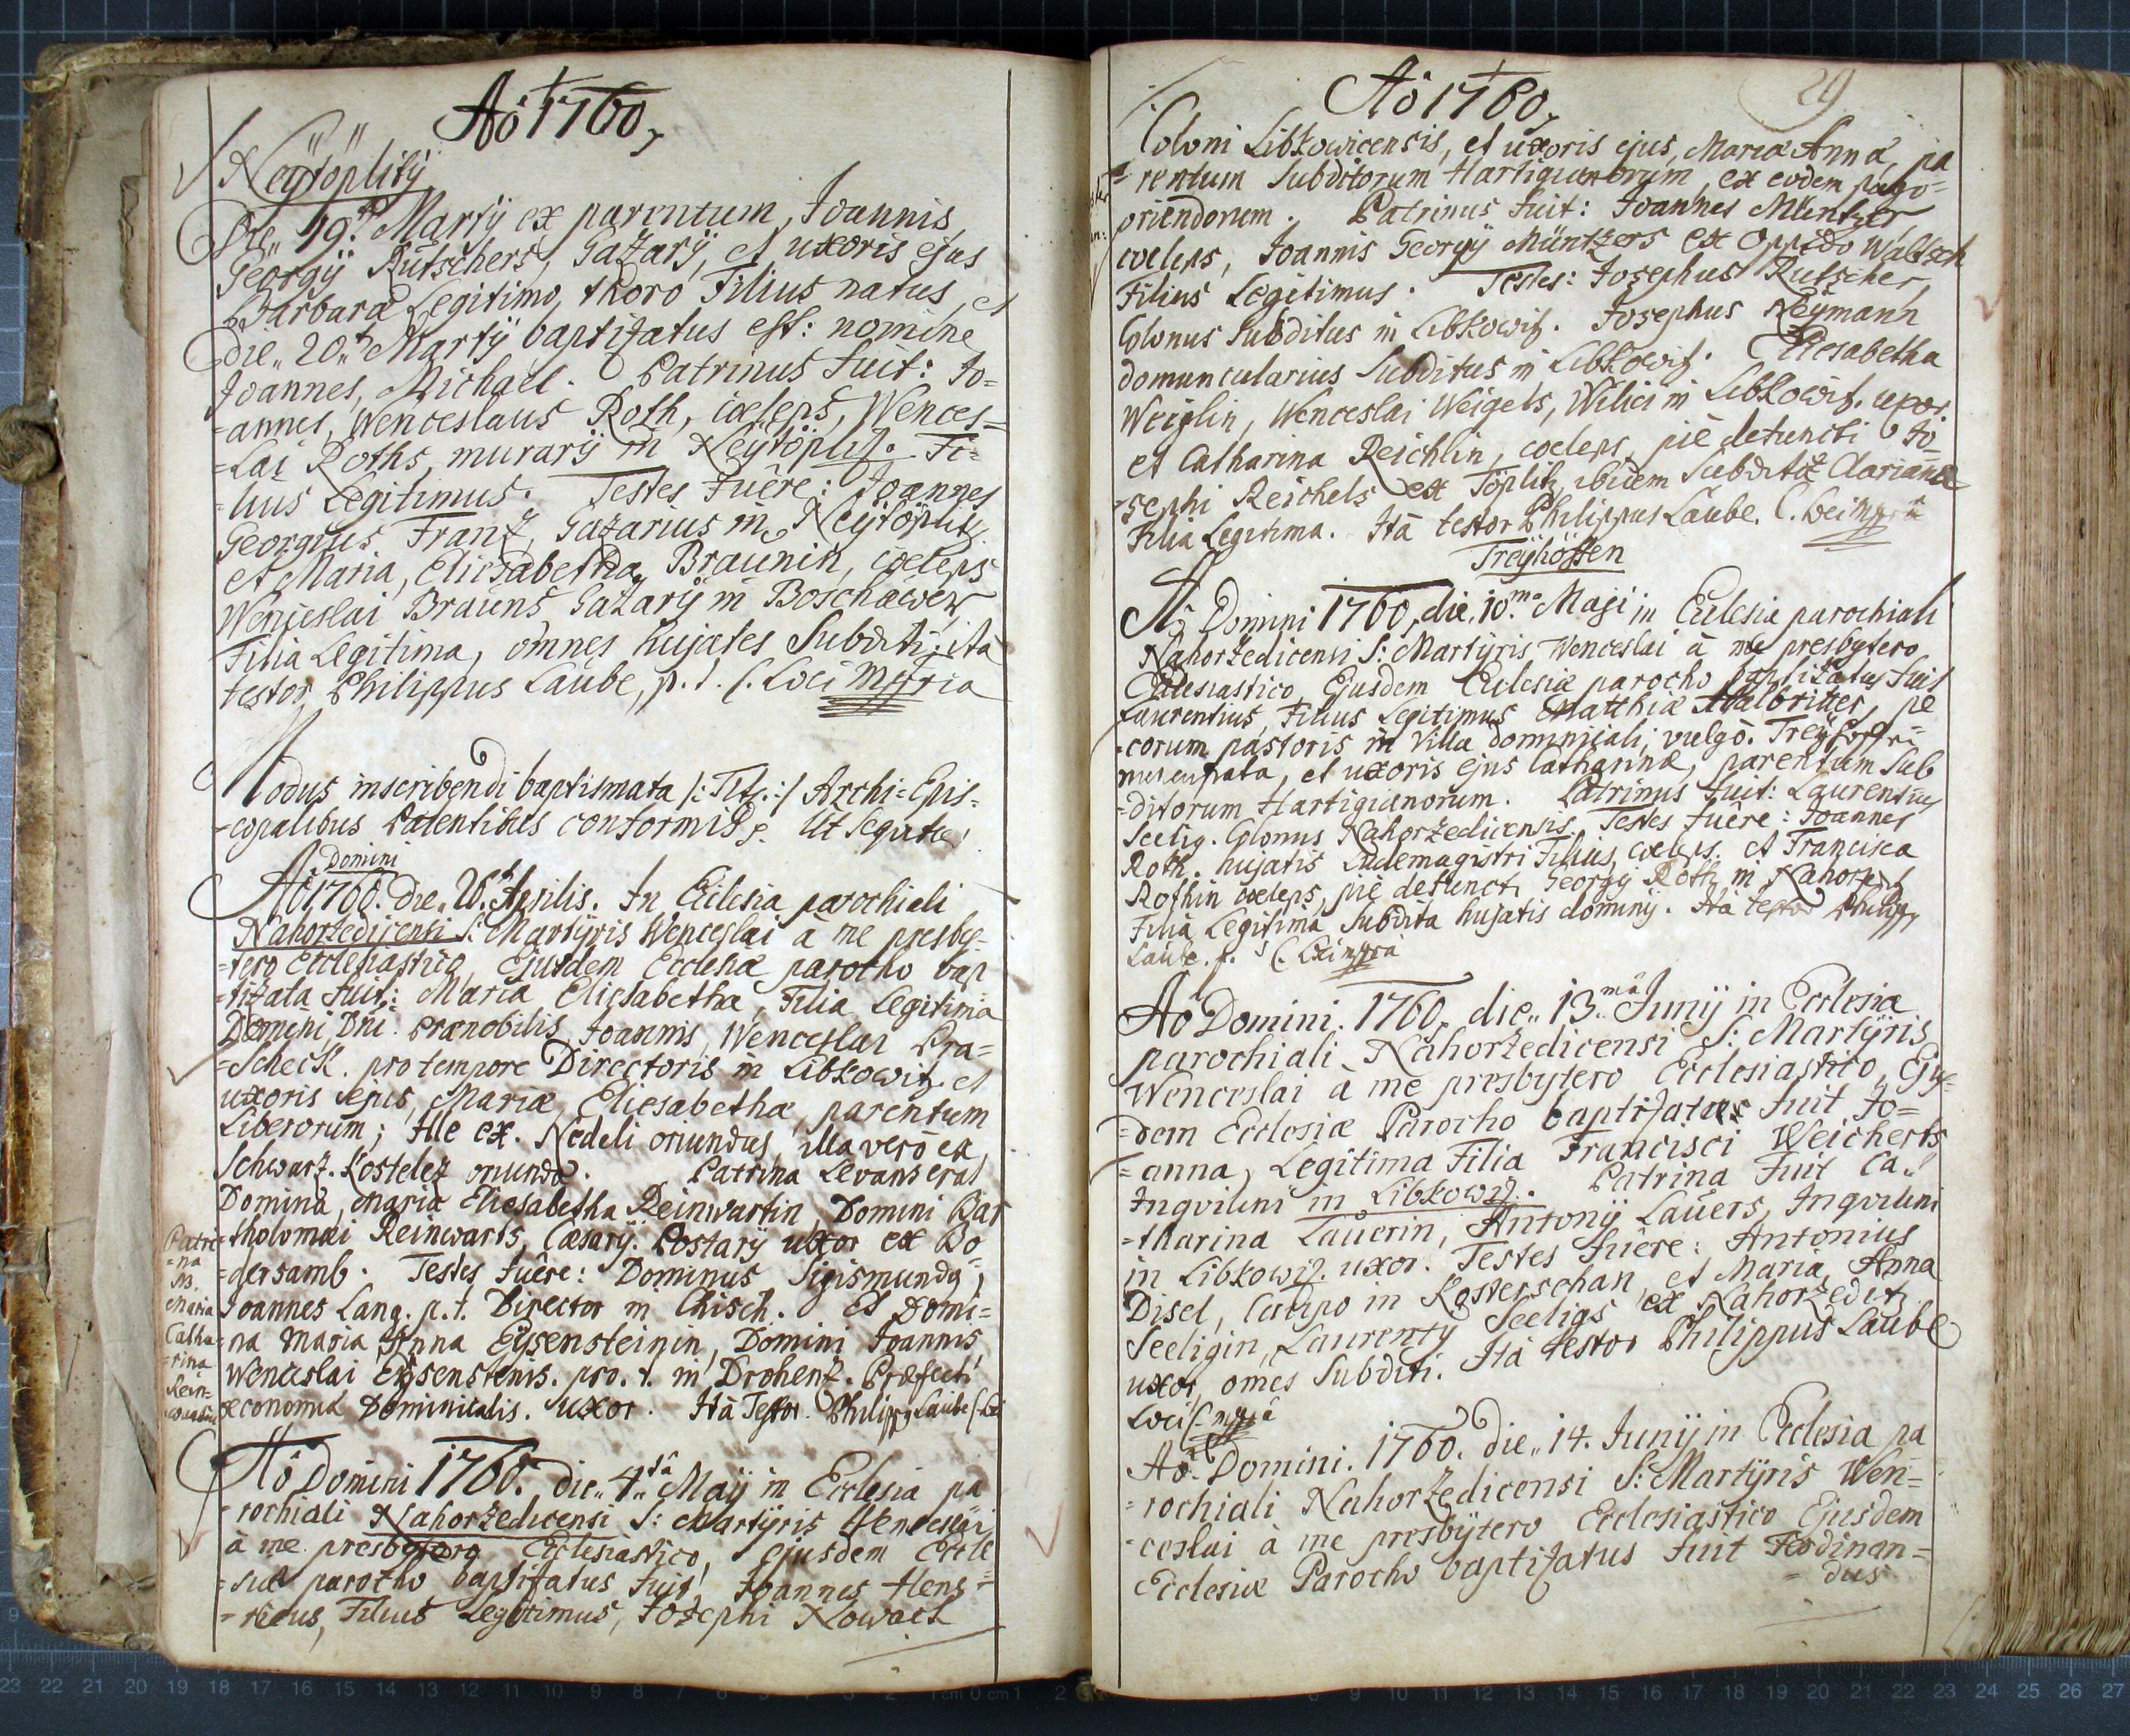 Aô 1760,
Neÿtöplitz
Die„ 19.ª Martÿ ex parentum, Joannis
Georgÿ Rutschers, Gazarÿ, et uxoris ejus
Barbaræ Legitimo, thoro Filius natus, et
die„ 20.ª Martÿ baptizatus est: nomine
Joannes, Michael. Patrinus fuit: Jo=
=annes, Wenceslaus Roth, cœleps, Wences=
=lai Roths, murarÿ in Neÿtöplitz. Fi=
=lius Legitimus. Testes fuêre: Joannes
Georgius Franz, Gazarius in Neÿtöplitz.
et Maria, Eliesabetha Braunin, cœleps
Wenceslai Brauns, Gazarÿ in Boschawen
Filia Legitima, omnes hujates Subditi: ita
testor Philippus Laube, p.t. C. Loci mppria
Modus inscribendi baptismata /: Titl: :/ Archi=Epis=
=copalibus Patentibus conformis e. Ut Sequitur
Domini
Aô 1760. Die„ 26.ª Aprilis. In Ecclesia parochiali
Nahorzedicensi S: Martÿris Wenceslai à me presby=
=tero Ecclesiastico, Ejusdem Ecclesiæ parocho bap
=tizata fuit: Maria Eliesabetha, Filia Legitima
Domini, Dni. Prænobilis Joannis, Wenceslai Pra=
=scheck. pro tempore Directoris in Libkowitz. et
uxoris ejus, Mariæ, Eliesabethæ, parentum
Liberorum; Ille ex. Nedeli oriundus, illa verò ex
Schwarz. Kosteletz oriunda. Patrina Levans erat
Domina, Maria Eliesabetha Reinwartin, Domini Bar
=tholomæi Reinwarts, Cæsarÿ. Postarÿ uxor ex Bo=
=dersamb. Testes fuêre: Dominus Sigismundg,
Joannes Lang. p.t. Director in Chisch. Et Domi=
=na Maria Anna Eÿsensteinin, Domini Joannis
Wenceslai Eÿsensteins. pro. t. in Drohentz. Præfecti
œconomiæ Dominicalis. uxor. Ità Testor. Philippg Laube C. Loci
Patri=
=na
NB.
Maria
Catha=
=rina
Rein=
=wartin
Aô Domini 1760. die„ 4.tâ Maÿ in Ecclesia pa
=rochiali Nahorzedicensi S: Martÿris Wenceslai
à me presbytero Ecclesiastico, ejusdem Eccle
=siæ parocho baptizatus fuit Joannes Hens=
=ricus, Filius Legitimus, Josephi Nowack
29
Aô 1760,
Coloni Libkowicensis, et uxoris ejus, Mariæ Annæ, pa
=rentum Subditorum Hartigianorum, ex eodem pago=
oriendorum. Patrinus fuit: Joannes Müntzer
cœleps, Joannis Georgÿ Müntzers ex Oppido Waltsch
Filius Legitimus. Testes: Josephus Rutscher,
Colonus Subditus in Libkowitz. Josephus Neÿmann
domuncularius Subditus in Libkowitz. Eliesabetha
Weiglin, Wenceslai Weigels, Vilici in Libkowitz. uxor.
et Catharina Reichlin, cœleps, piè defuncti Jo=
=sephi Reichels ex Töplitz ibidem Subditæ Clarianæ
Filia Legitima. Ità testor Philippus Laube. C. Loci mppria
Treÿhöffen
Aô Domini 1760, die. 10.mâ Maji in Ecclesia parochiali
Nahorzedicensi S: Martÿris Wenceslai à me presbytero
Ecclesiastico, Ejusdem Ecclesiæ parocho baptizatus fuit
Laurentius, Filius Legitimus Matthiæ Halbritter, pe
=corum pastoris in Villa dominicali, vulgò. Treÿhoff
nuncupata, et uxoris ejus Catharinæ, parentum Sub
=ditorum Hartigianorum. Patrinus fuit: Laurentius
Seelig. Colonus Nahorzedicensis. Testes fuêre: Joannes
Roth. hujatis Ludemagistri Filius, cœleps. et Francisca
Rothin cœleps, piè defuncti Georgÿ Roth in Nahorzed
Filia Legitima Subdita hujatis dominÿ. Ità testor Philippg
Laube. p. t. C. Loci mppria
Aô Domini. 1760, die„ 13.mâ Junÿ in Ecclesia
parochiali Nahorzedicensi S: Martÿris
Wenceslai à me presbytero Ecclesiastico, Ejus=
=dem Ecclesiæ Parocho baptizatus fuit Jo=
=anna, Legitima Filia Francisci Weicherts
Inquilini in Libkowitz. Patrina fuit Ca=
=tharina Lauerin, Antonÿ Lauers, Inquilini
in Libkowitz. uxor. Testes fuêre: Antonius
Disel, Caupo in Kosterschan, et Maria, Anna
Seeligin, Laurentÿ Seeligs ex Nahorzeditz
uxor, omes Subditi. Ità testor Philippus Laube
Loci C. mppria
Aô. Domini. 1760. die„ 14. Junÿ in Ecclesia pa
=rochiali Nahorzedicensi S: Martÿris Wen=
=ceslai à me presbÿtero Ecclesiastico Ejusdem
Ecclesiæ Parocho baptizatus fuit Ferdinan=
=dus